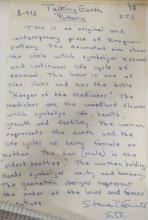 S-993 Talking Earth 98
Pottery S.I.S
This is an original and
contemporary piece of Iroquois
pottery. The decorated rim shows
the circle which symbolizes a sacred
and continuous life cycle of
renewal. The bear is one of
nine clans and has the title
"Keeper of the Medicines". The
medicines are the woodland flowers
which symbolize life, health,
growth and fertility. The woman
represents the earth and the
life cycles as being female or
mother. The sun (male) is our
"elder brother". The woman holding
hands symbolizes unity and harmony.
The geometric designs represent
the order of the land and forces
of nature.